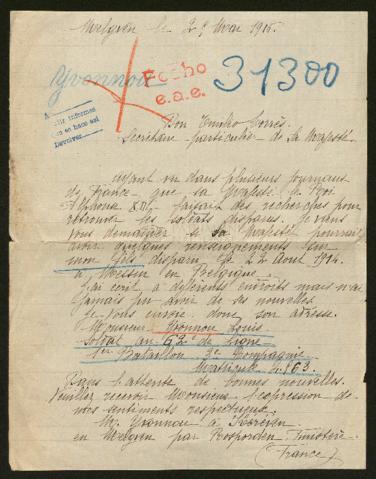 Melgven le 29 Mai 1915.
Yvonnou
Fecho
e.a.e.
31300
Don Emilio Torrès.
Secrétaire particulier de Sa Majesté.
ayant vu dans plusieurs journaux
de France que sa Majesté le Roi
Alphonse XIII faisait des recherches pour
retrouver les soldats disparus. Je viens
vous demander si sa Majesté pourrait
avoir quelques renseignements sur
mon fils disparu le 22 Aout 1914.
à Messin en Belgique.
J'ai écrit à différents endroits mais n'ai
jamais pu avoir de ses nouvelles
Je vous envoie donc son adresse.
Monsieur Yvonnou Louis
Soldat au 62e de Ligne
1er Bataillon 3e Compagnie
Matricule 4.163.
Dans l'attente de bonnes nouvelles.
Veuillez recevoir Monsieur l'expression de
mes sentiments respectueux.
Mr Yvonnou à
en Melgven par Rosporden Finistère
(France)